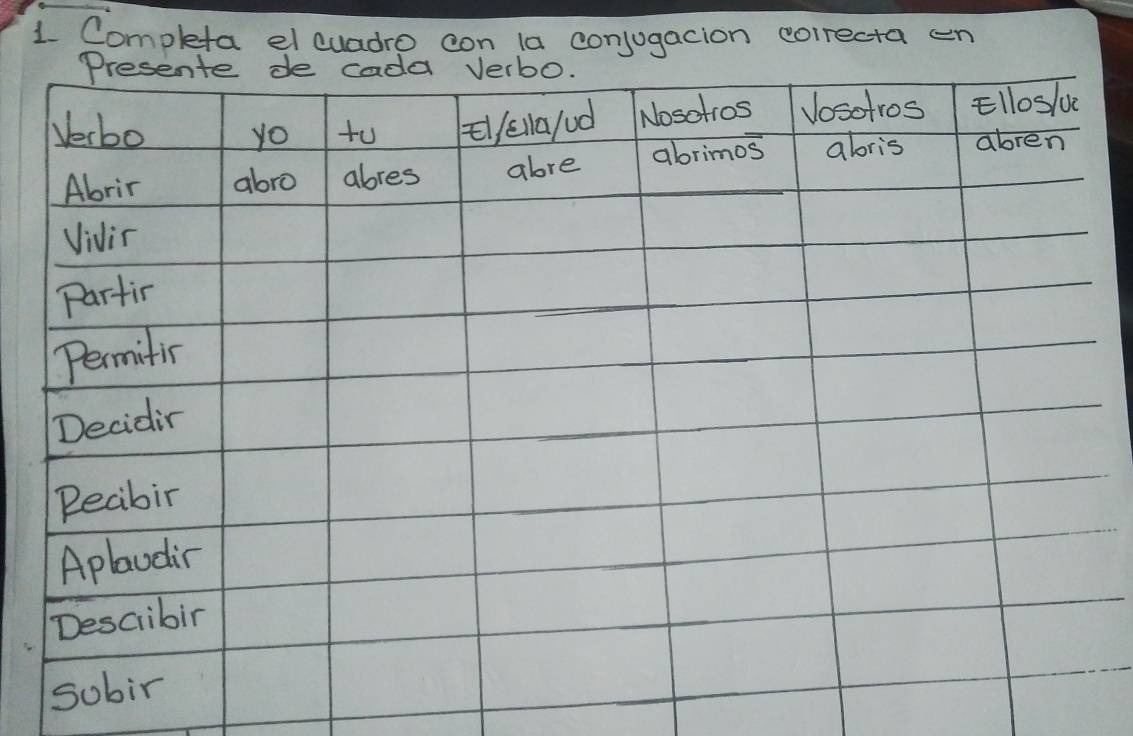 1- Completa el cuadro con la conjugacion correcta en
Presente de cada Verbo.
Verbo yo tu El/Ella/ud Nosotros Vosotros Ellos/
Abrir abro abres abre abrimos abris abren
Vivir
Partir
Permitir
Decidir
Recibir
Aplaudir
Describir
Subir